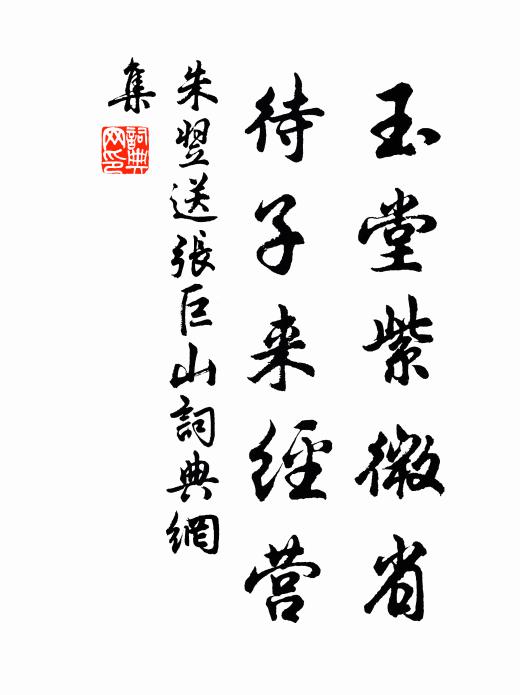 玉堂紫微省
待子来經营
朱翌送張巨山詞典網
集
詞典网印